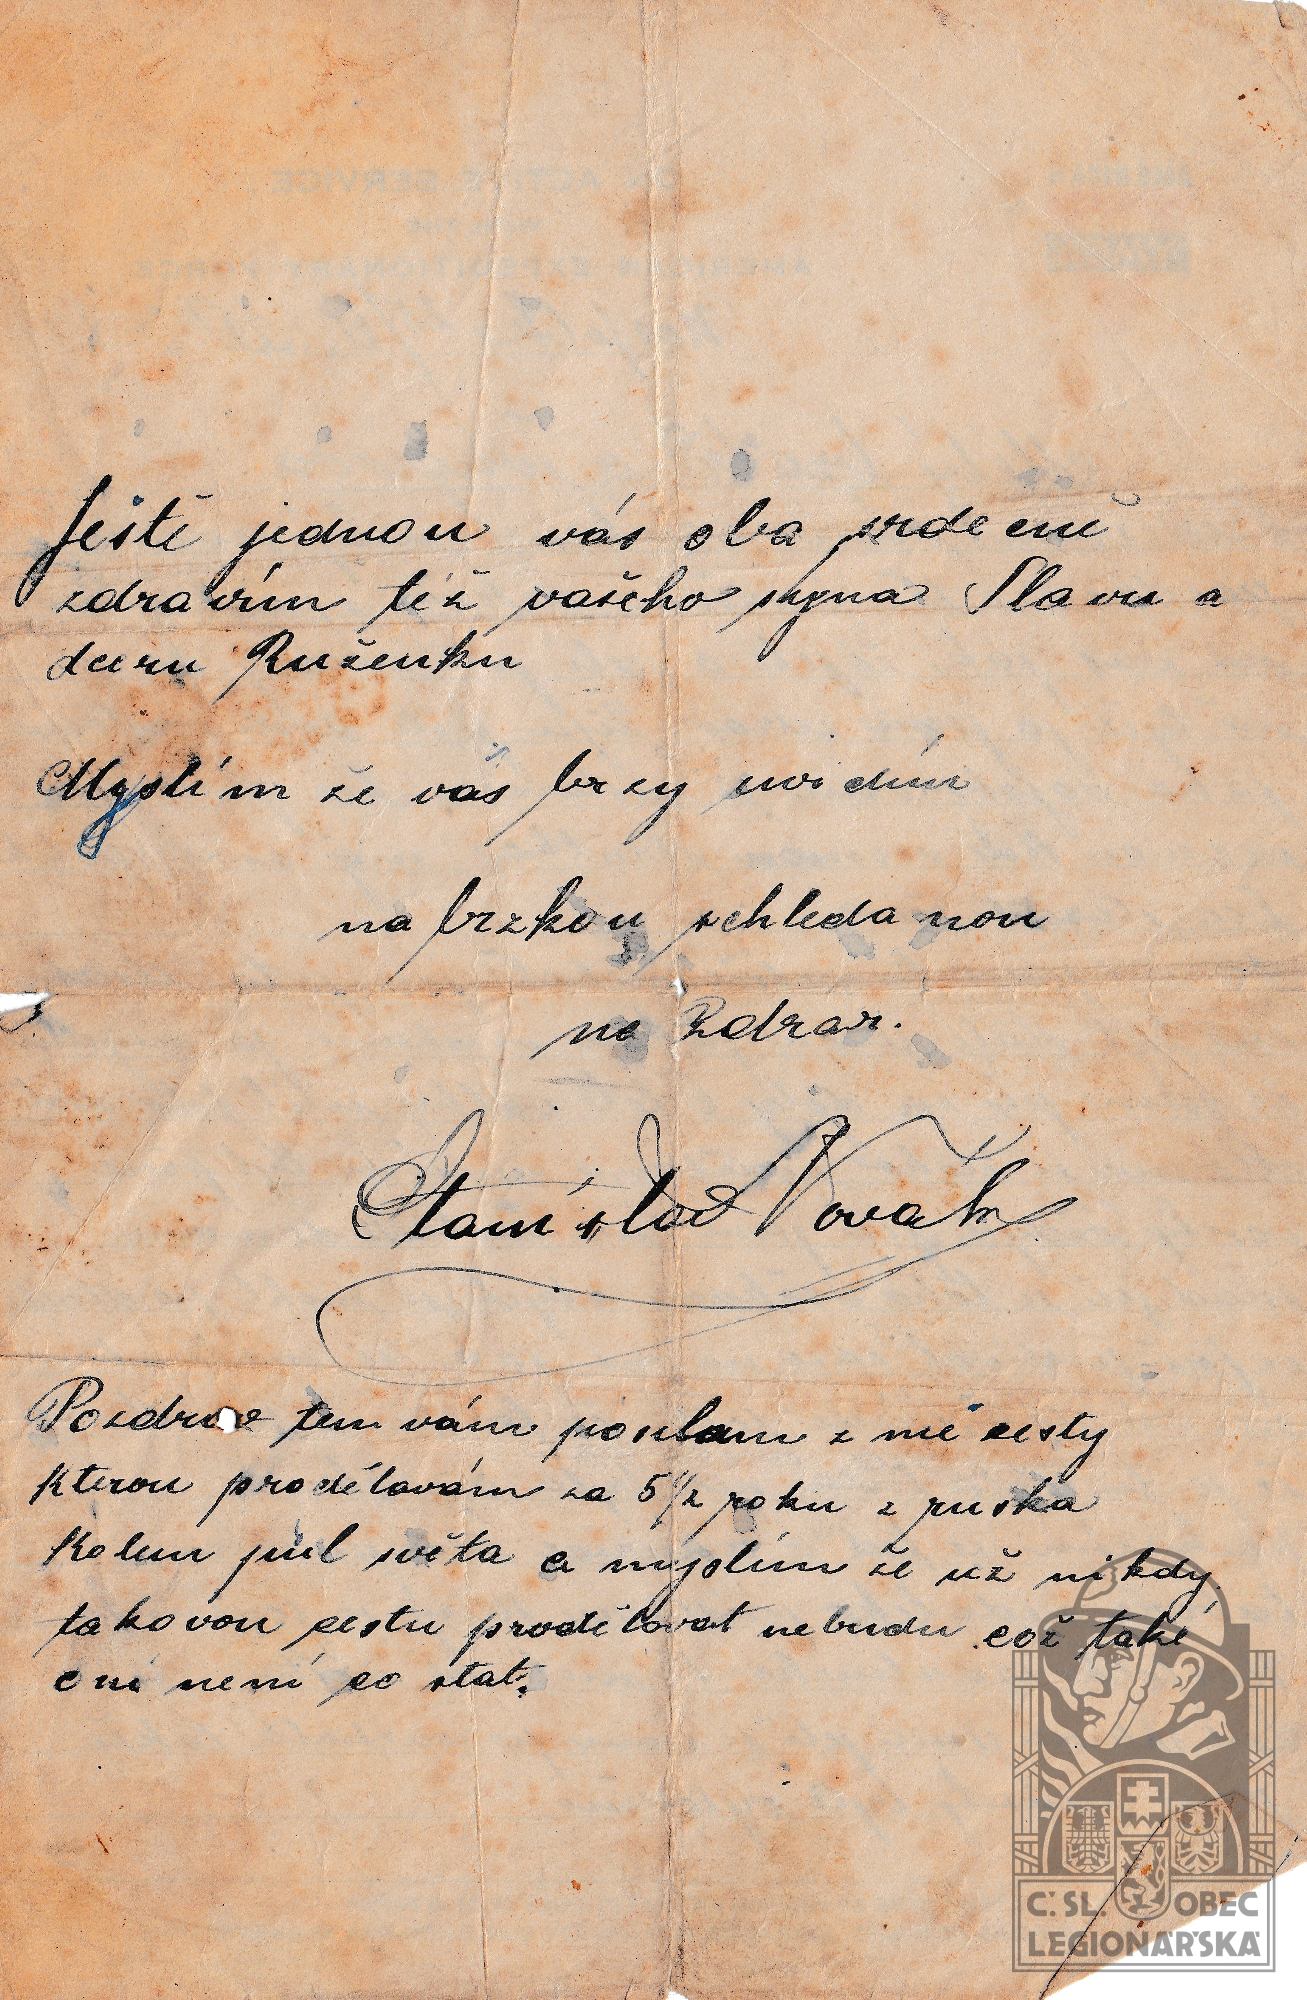 Ještě jednou vás oba srdečně
zdravím též vašeho syna Slavu a
dceru Ruženku
Myslím že vás brzy uvidím
na brzkou schledanou
na Zdrar.
Stanislav Novák
Pozdrav ten vám posilam z mé cesty
kterou prodělavám za 5 1/2 roku z ruska
kolem půl světa a myslím že už nikdy
takovou cestu prodělovat nebudu což také
ani není co stát.
Č. SL. OBEC
LEGIONÁŘSKÁ